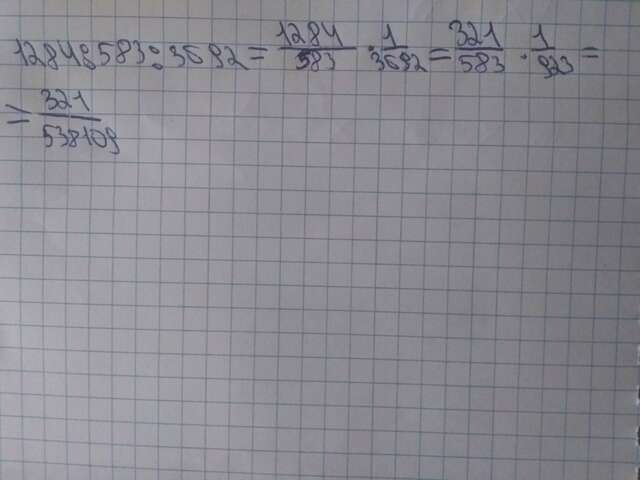 1284:583:3692=1284/583·1/3692=321/583·1/923=
=321/538109